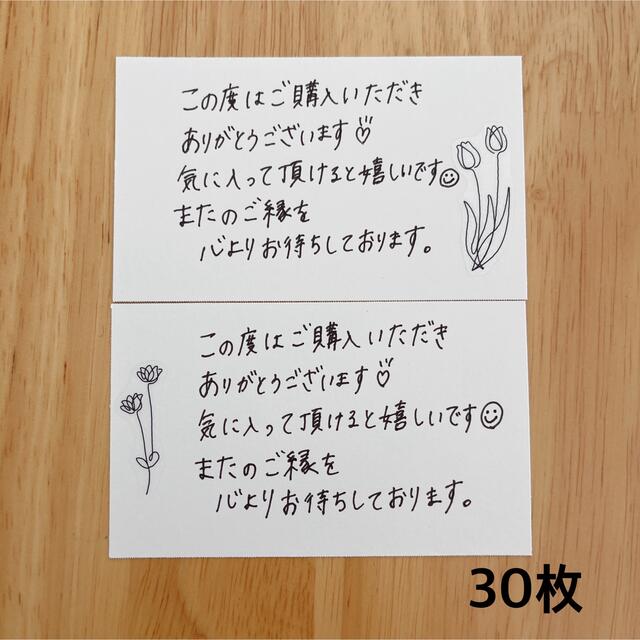 この度はご購入いただき
ありがとうございます♡
気に入って頂けると嬉しいです☺
またのご縁を
心よりお待ちしております。
この度はご購入いただき
ありがとうございます♡
気に入って頂けると嬉しいです☺
またのご縁を
心よりお待ちしております。
30枚